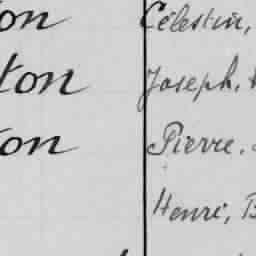 on Célestin,
ton Joseph,
on Pierre,
Henri, B